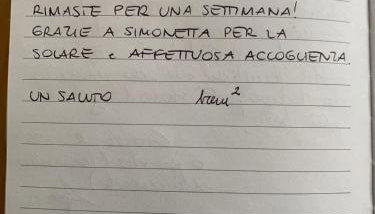 RIMASTE PER UNA SETTIMANA!
GRAZIE A SIMONETTA PER LA
SOLARE e AFFETTUOSA ACCOGLIENZA.
UN SALUTO